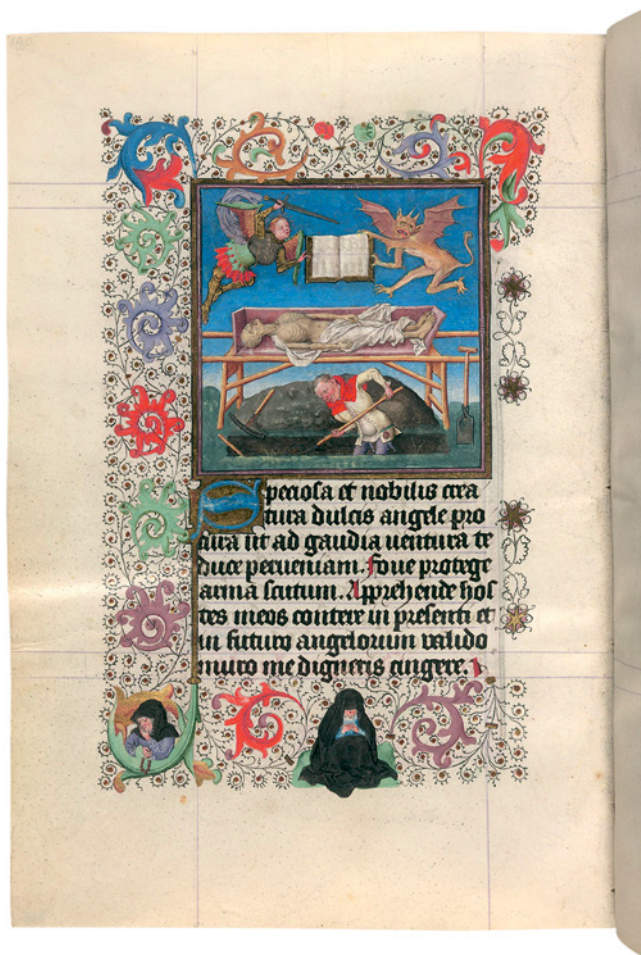 Speciosa et nobilis crea
tura dulcis angele pro
cura ut ad gaudia uentura te
duce perueniam. Foue protege
arma scutum. Apprehende hos
tes meos contere in presenti et
in futuro angelorum valido
muro me digneris cingere.